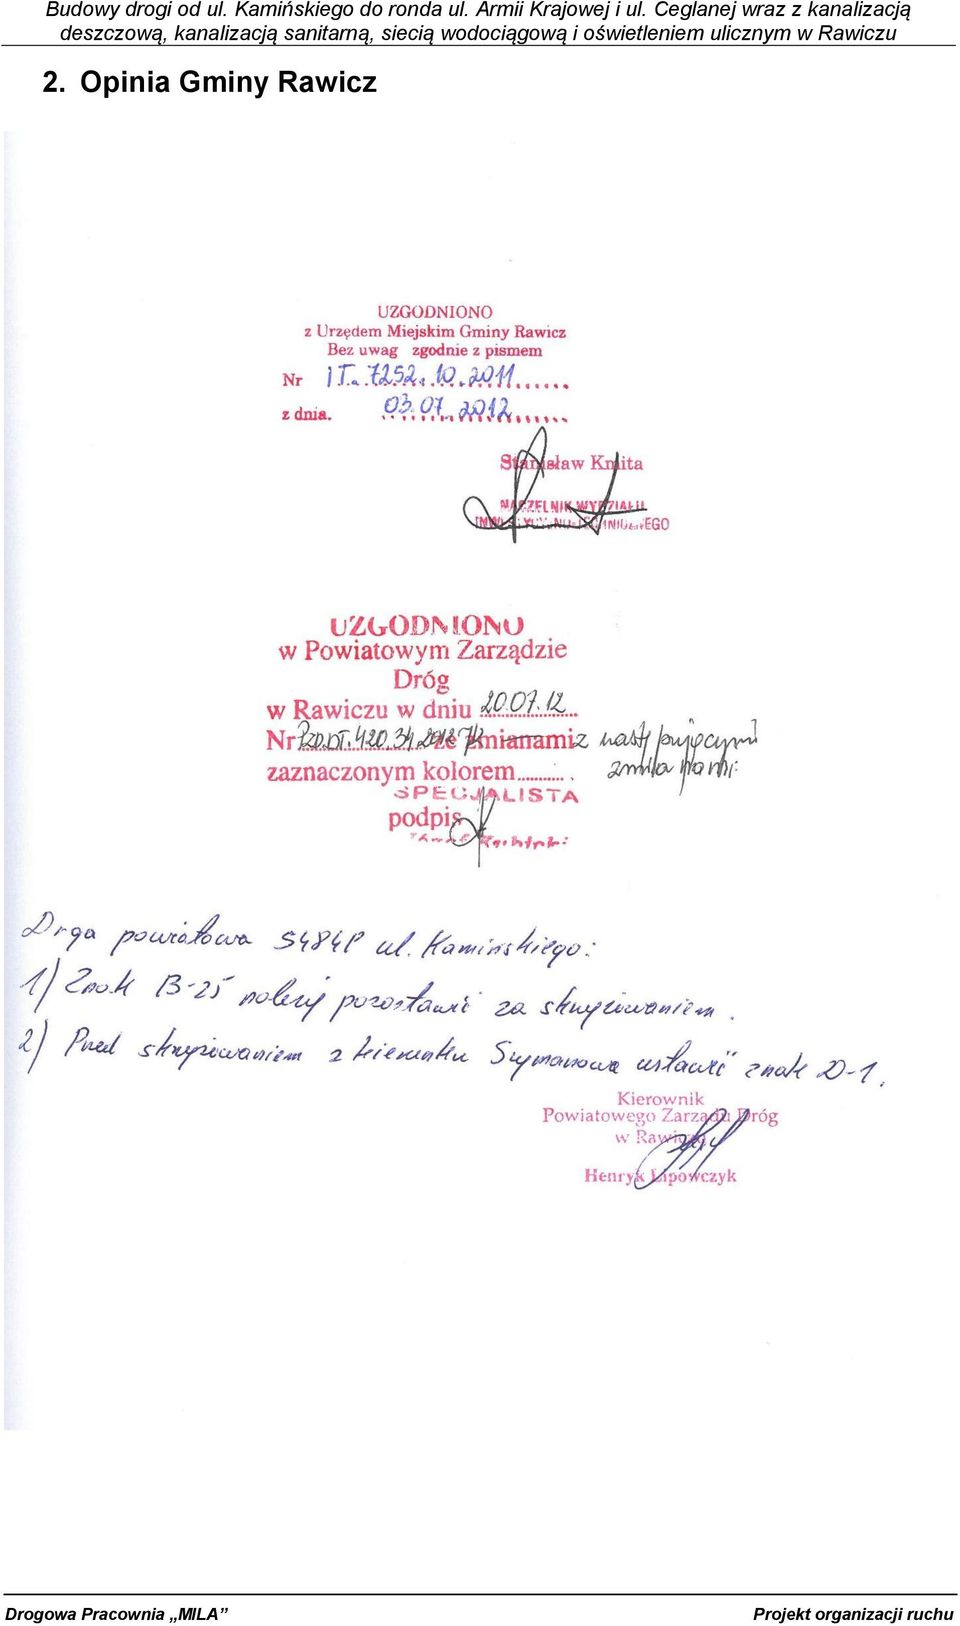 Budowy drogi od ul. Kamińskiego do ronda ul. Armii Krajowej i ul. Ceglanej wraz z kanalizacją
deszczową, kanalizacją sanitarną, siecią wodociągową i oświetleniem ulicznym w Rawiczu
2. Opinia Gminy Rawicz
UZGODNIONO
z Urzędem Miejskim Gminy Rawicz
Bez uwag zgodnie z pismem
Nr IT. 7252. 10. 2011
z dnia. 03.07.2012
Stanisław Kmita
NACZELNIK WYDZIAŁU
UZGODNIONO
w Powiatowym Zarządzie
Dróg
w Rawiczu w dniu 20.07.12
Nr PZD.DT.420.34.2012 ze zmianami z następującymi
zaznaczonym kolorem........... zmianami:
SPECJALISTA
podpis
Drga powiatowa 5484P ul. Kamińskiego:
1) Znak B-25 należy pozostawić za skrzyżowaniem.
2) Przed skrzyżowaniem z kierunku Szymanowa ustawić znak D-1.
Kierownik
Powiatowego Zarządu Dróg
w Rawiczu
Henryk Lipowczyk
Drogowa Pracownia „MILA” Projekt organizacji ruchu